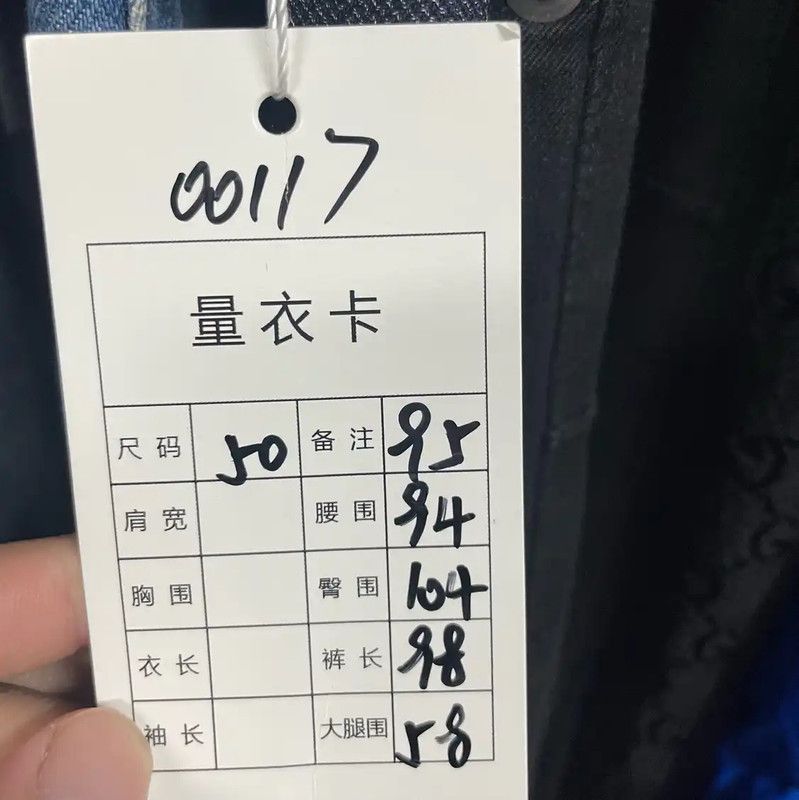 00117
量衣卡
尺码 50 备注 95
肩宽 腰围 94
胸围 臀围 104
衣长 裤长 98
袖长 大腿围 58